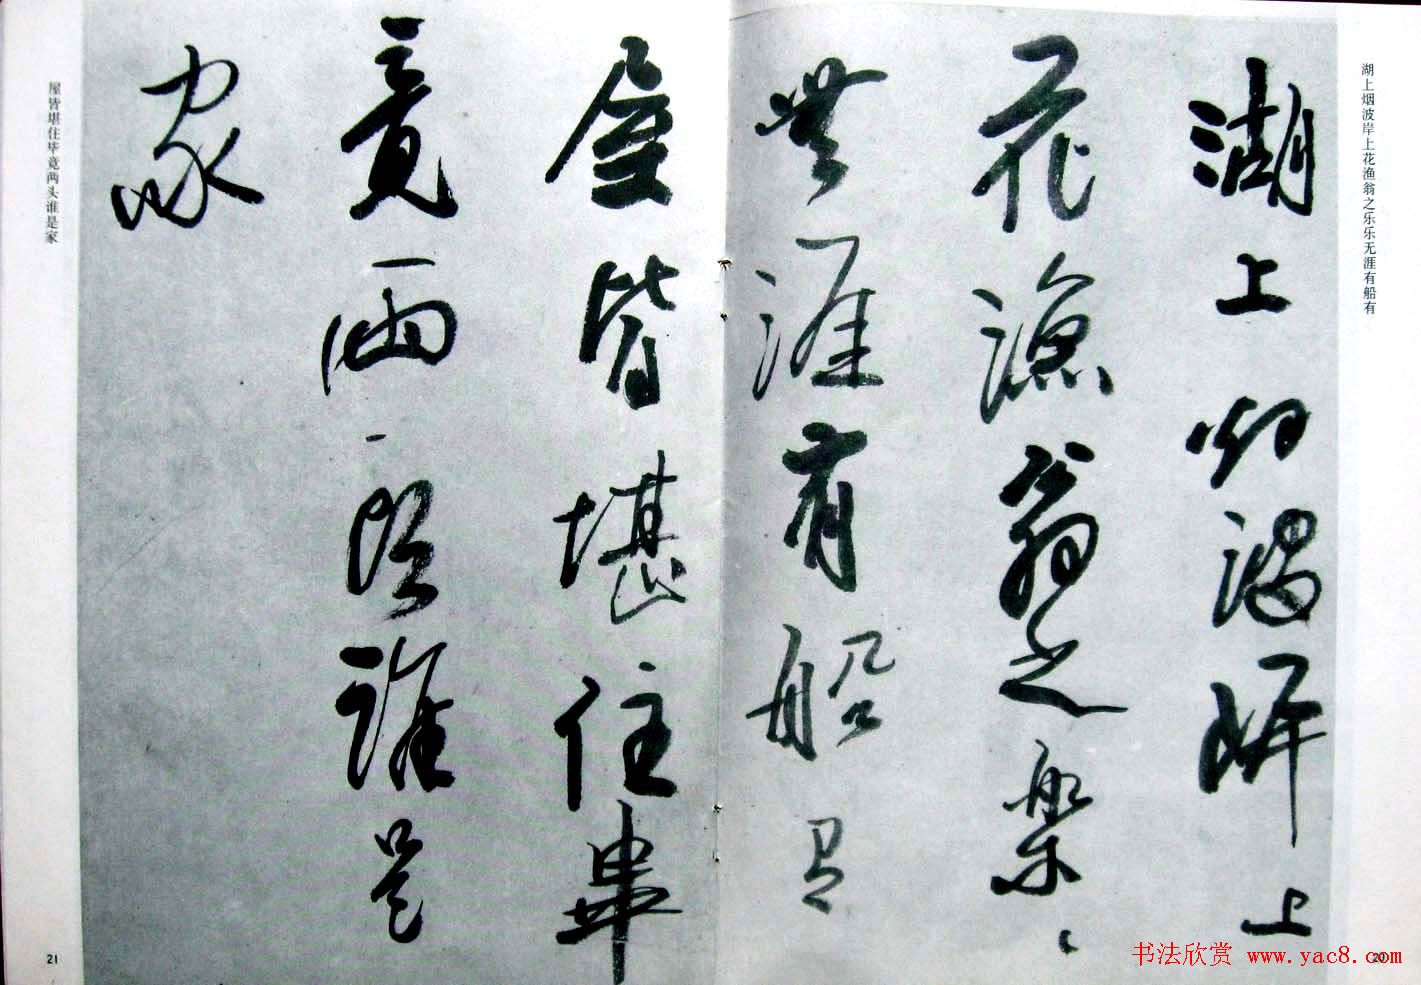 湖上烟波岸上花渔翁之乐乐无涯有船有
湖上烟波岸上
花漁翁之樂〻
無涯有船有
屋皆堪住畢
竟兩頭誰是
家
屋皆堪住毕竟两头谁是家
20
21
书法欣赏 www.yac8.com